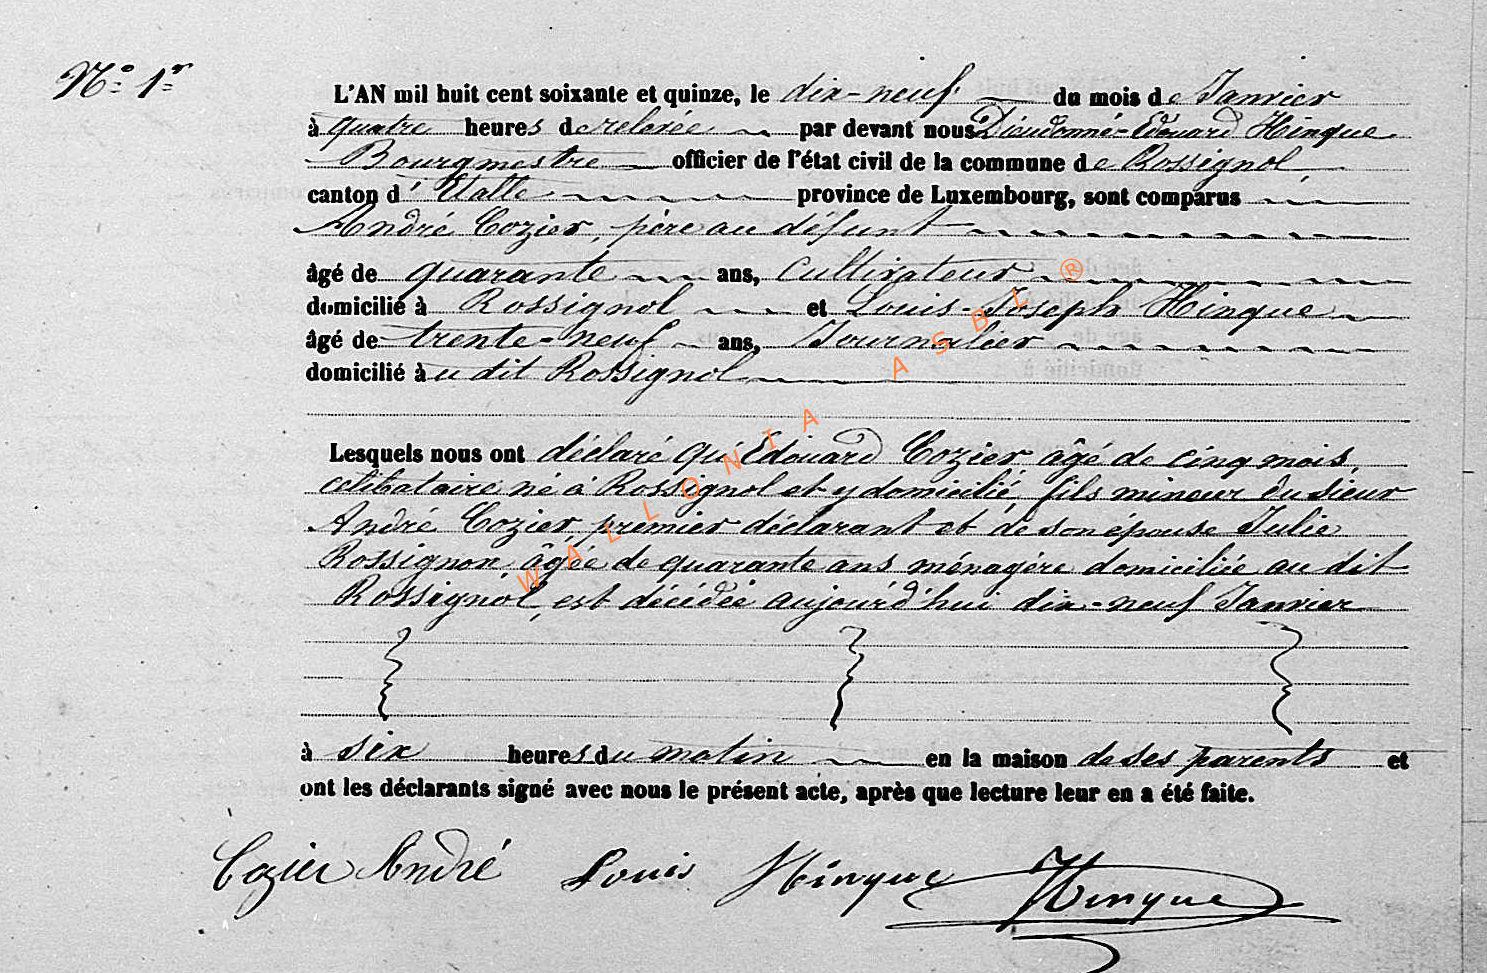 N° 1er
L'AN mil huit cent soixante et quinze, le dix-neuf du mois de Janvier
à quatre heures de relevée par devant nous Dieudonné-Edouard Hinque
Bourgmestre officier de l'état civil de la commune de Rossignol
canton d'Etalle province de Luxembourg, sont comparus
André Cozier, père au défunt
âgé de quarante ans, cultivateur
domicilié à Rossignol et Louis-Joseph Hinque
âgé de trente-neuf ans, Journalier
domicilié au dit Rossignol
Lesquels nous ont déclaré qu'Edouard Cozier âgé de cinq mois,
célibataire né à Rossignol et y domicilié, fils mineur du sieur
André Cozier, premier déclarant et de son épouse Julie
Rossignon âgée de quarante ans ménagère domiciliée au dit
Rossignol, est décédée aujourd'hui dix-neuf Janvier
à six heures du matin en la maison de ses parents et
ont les déclarants signé avec nous le présent acte, après que lecture leur en a été faite.
Cozier André Louis Hinque Hinque
WALLONIA ASBL ®